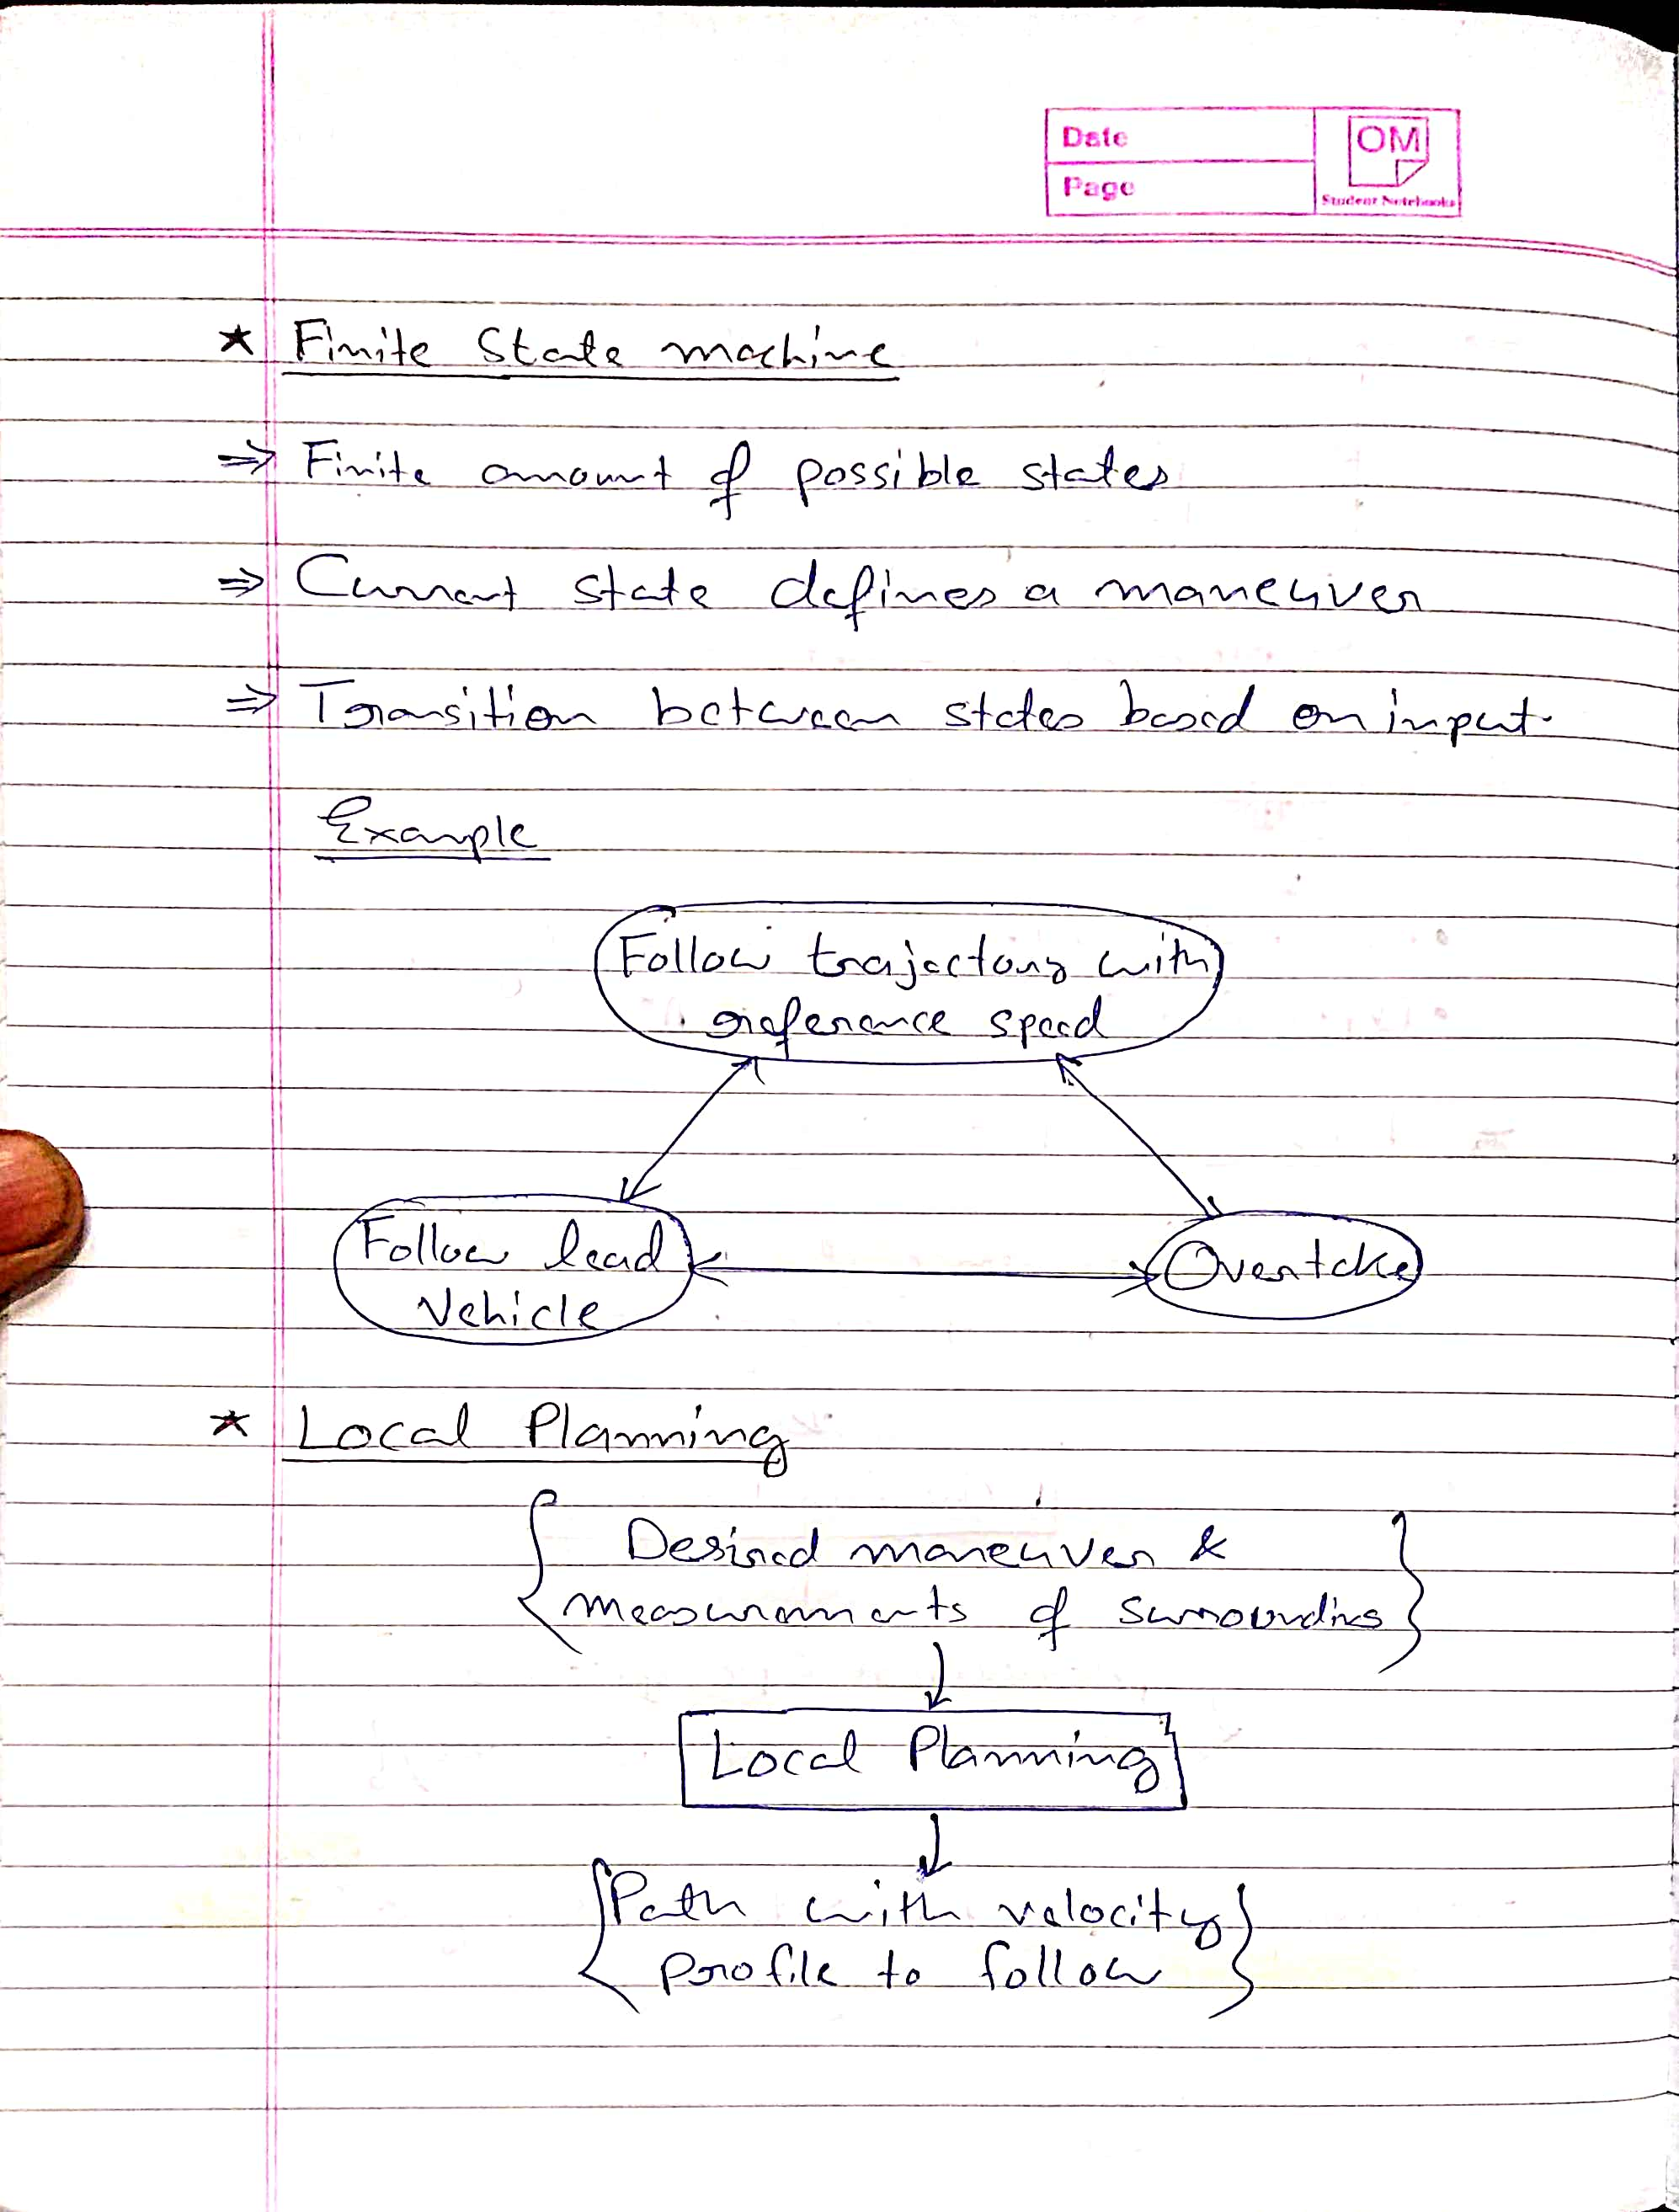 Date
Page
OM
Student Notebooks
★ Finite State machine
⇒ Finite amount of possible states
⇒ Current state defines a maneuver
⇒ Transition between states based on input.
Example
Follow trajectory with
reference speed
Follow lead
Vehicle
Overtake
★ Local Planning
{ Desired maneuver &
measurements of surroundins }
↓
Local Planning
↓
{ Path with velocity
profile to follow }